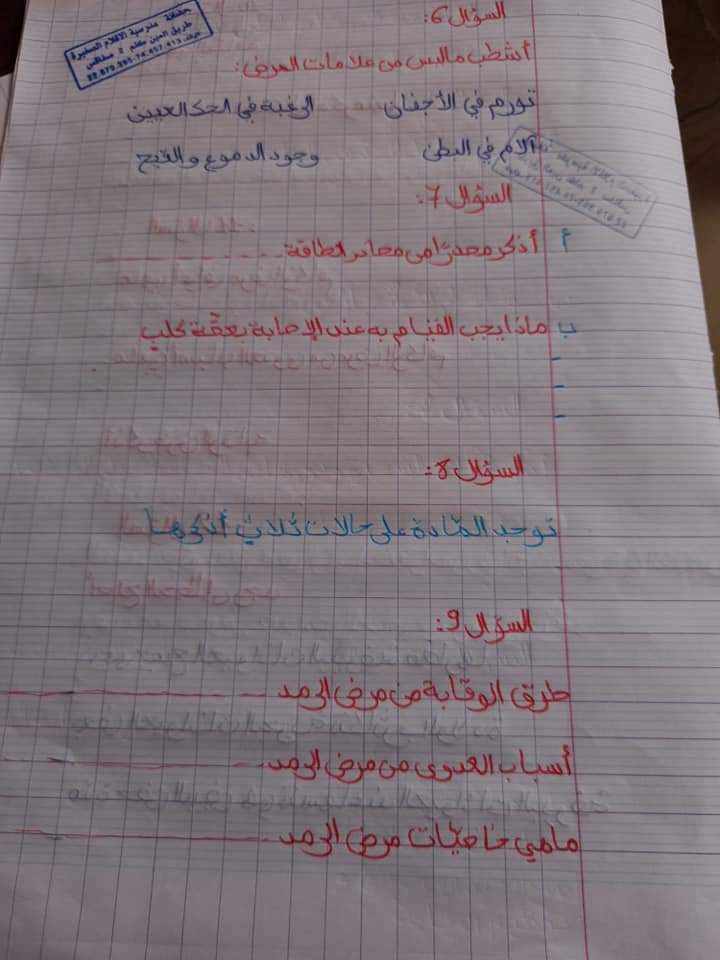 حضانة مدرسية الاقلام الصغيرة
طريق العين مقلم 2 صفاقس
السؤال 6:
أشطب ماليس من علامات المرض:
تورم في الأجفان الرغبة في الحك العينين
آلام في البطن وجود الدموع والقيح
السؤال 7:
أ أذكر مصدرا من مصادر الطاقة
ب ماذا يجب القيام به عند الإصابة بعضّة كلب
-
-
-
السؤال 8:
توجد المادّة على حالات ثلاث أذكرها
السؤال 9:
طرق الوقاية من مرض الرمد
أسباب العدوى من مرض الرمد
ماهي خاصيّات مرض الرمد